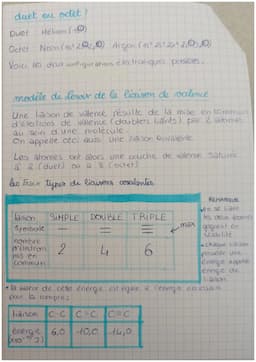 duet ou octet ?
Duet Hélium (1s②)
Octet Néon (1s² 2s②2p⑥) Argon (1s² 2s² 2p⁶ 3s②3p⑥)
Voici les deux configurations électroniques possibles.
modèle de Lewis de la liaison de valence
Une liaison de valence résulte de la mise en commun
d'électrons de valence (doublets liants) par 2 atomes
au sein d'une molécule.
On appelle ceci aussi une liaison covalente.
Les atomes ont alors une couche de valence saturée
à 2 (duet) ou à 8 (octet)
les trois types de liaisons covalentes
REMARQUE
liaison SIMPLE DOUBLE TRIPLE
symbole — = ≡
max
nombre d'électrons mis en commun 2 4 6
les deux atomes
gagnent en
stabilité
chaque liaison
possède une
énergie appelée
énergie de
liaison
la valeur de cette énergie est égale à l'énergie nécessaire
pour la rompre :
liaison C-C C=C C≡C
énergie 6,0 10,0 14,0